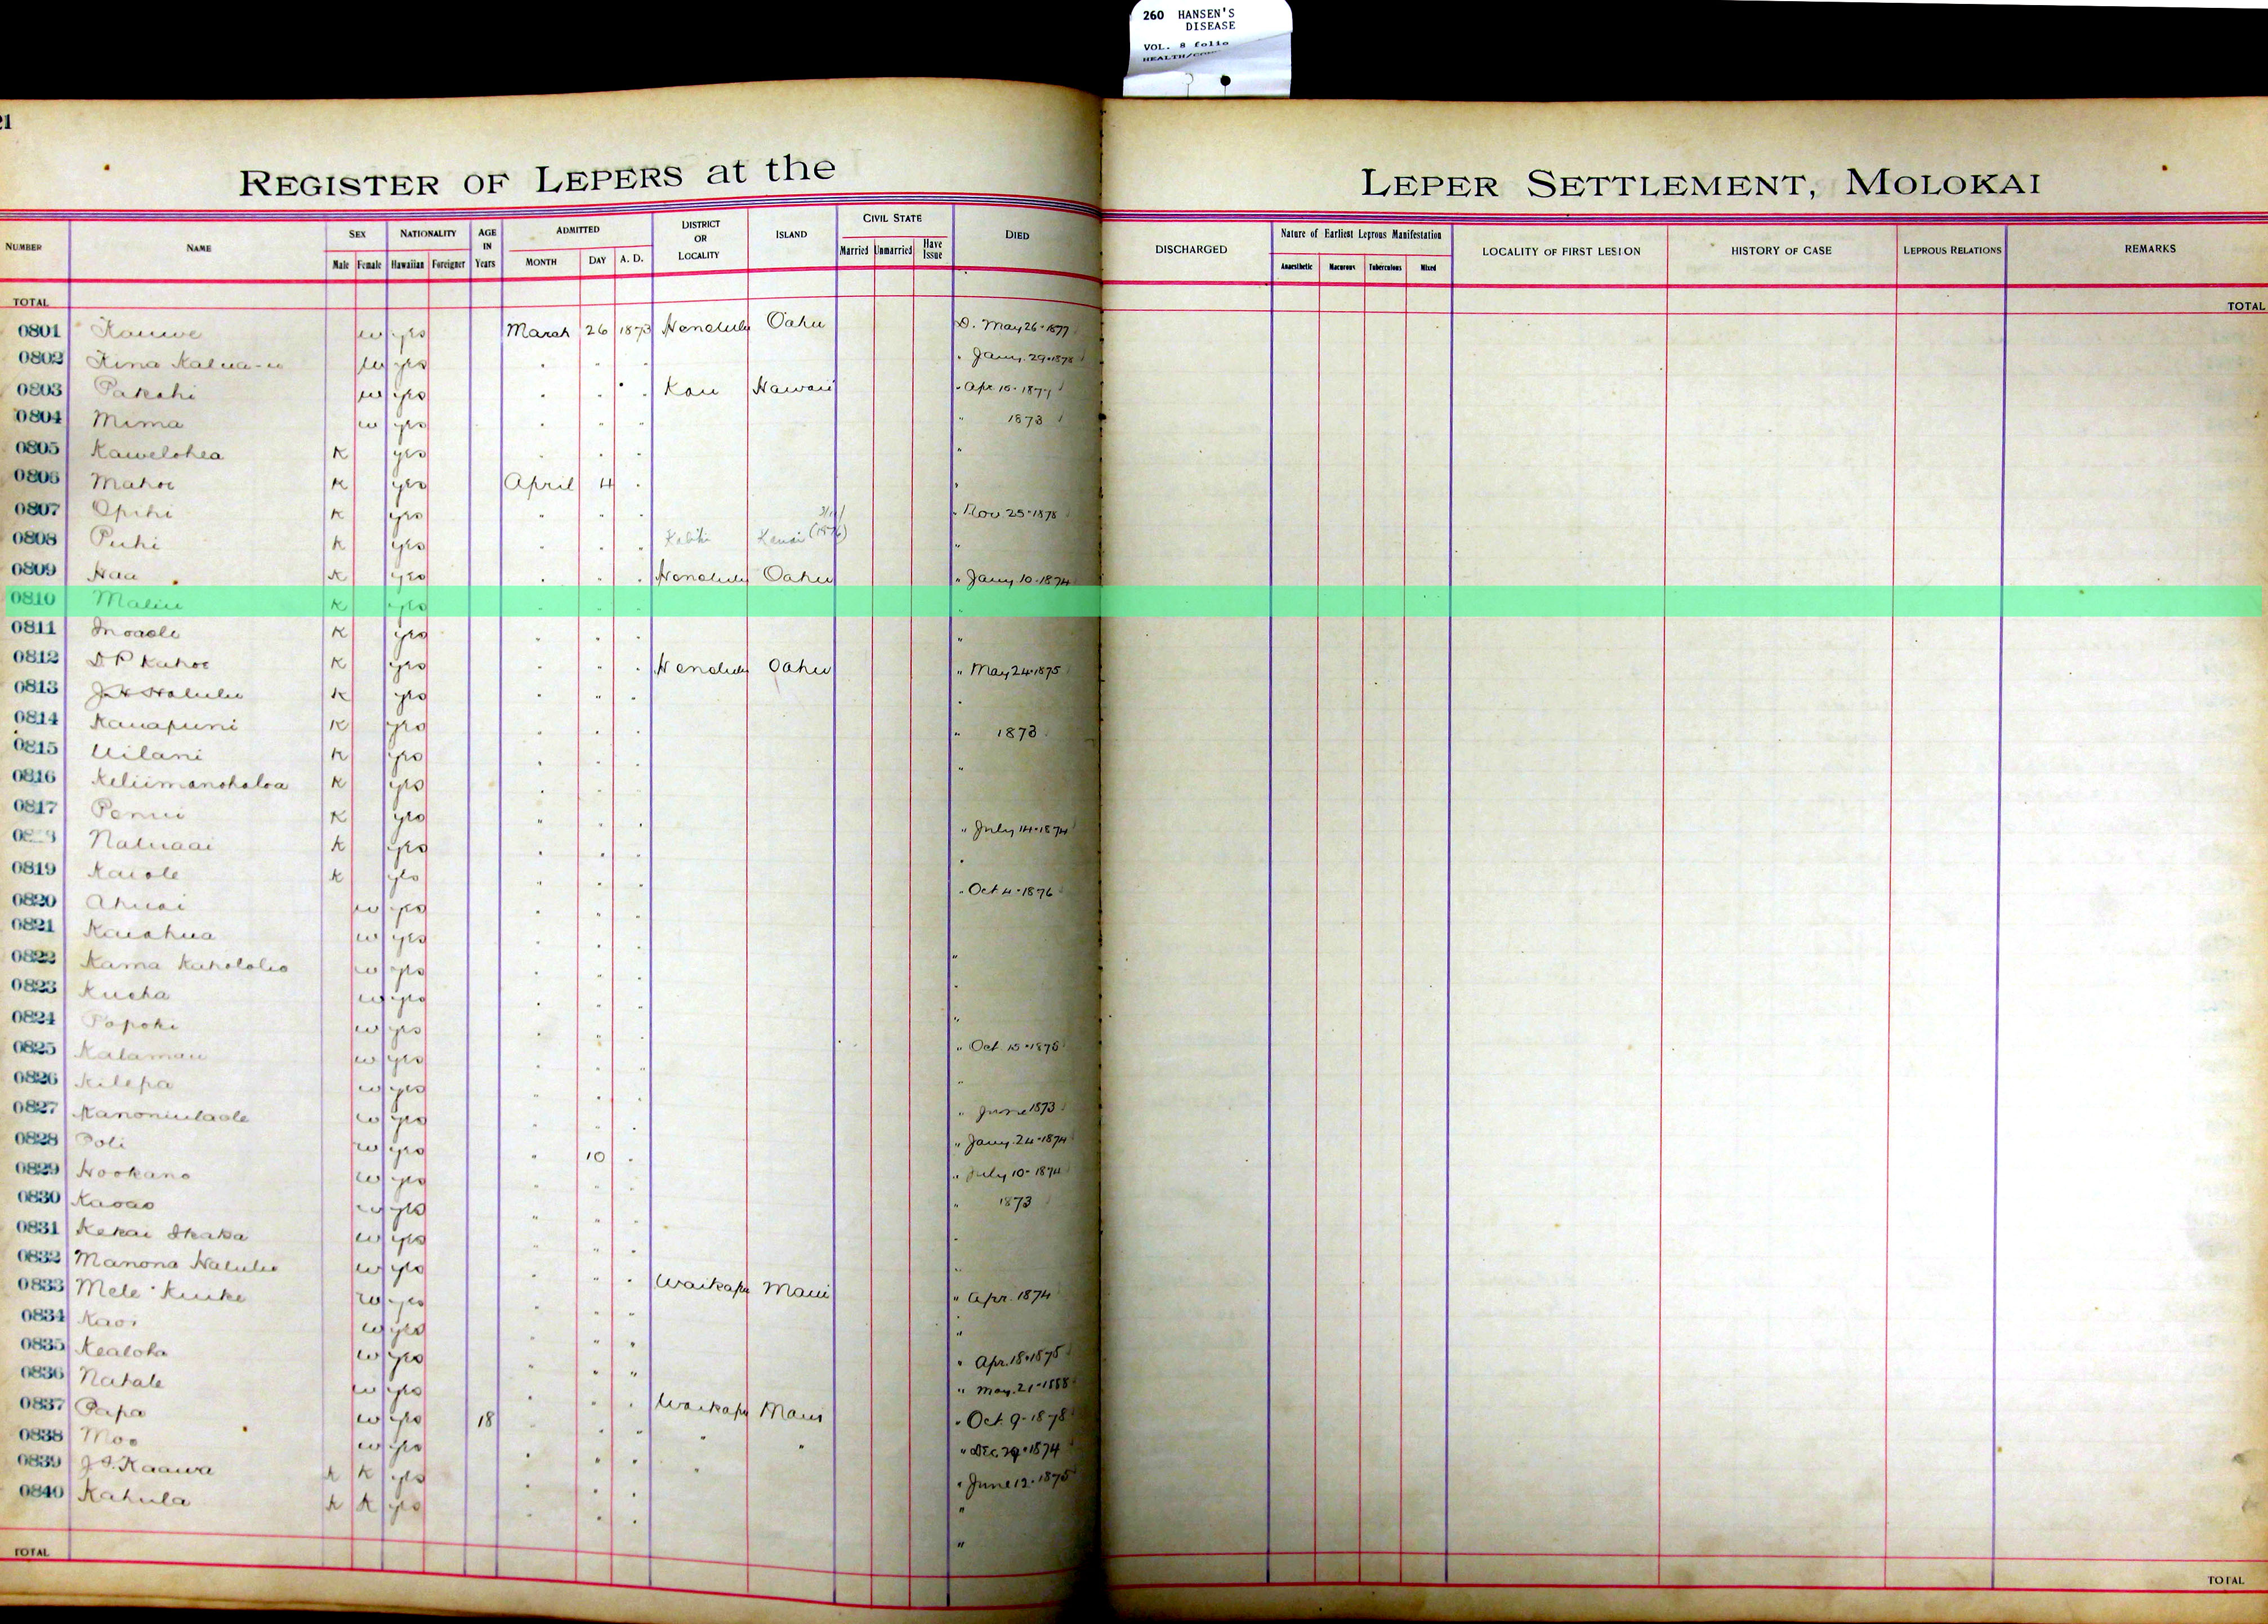 260 HANSEN'S
DISEASE
VOL. 8 folio
21
REGISTER OF LEPERS at the LEPER SETTLEMENT, MOLOKAI
NUMBER NAME SEX NATIONALITY AGE IN Years ADMITTED DISTRICT OR LOCALITY ISLAND CIVIL STATE DIED DISCHARGED Nature of Earliest Leprous Manifestation LOCALITY OF FIRST LESION HISTORY OF CASE LEPROUS RELATIONS REMARKS
Male Female Hawaiian Foreigner MONTH DAY A. D. Married Unmarried Have Issue Anaesthetic Macurous Tuberculous Mixed
TOTAL TOTAL
0801 Kauwe w yes March 26 1873 Honolulu Oahu D. May 26-1877
0802 Kina Kalua-u w yes " " " " Jany. 29-1878
0803 Pakahi w yes " " " Kau Hawaii " Apr 10-1877
0804 Mima w yes " " " " 1873
0805 Kawelohea K yes " " " "
0806 Mahoe K yes April 4 " "
0807 Opihi K yes " " " " Nov 25-1878
0808 Puhi K yes " " " Kauai "
0809 Haa K yes " " " Honolulu Oahu " Jany 10-1874
0810 Maliu K yes " " " "
0811 Inoaole K yes " " " "
0812 D P Kahoe K yes " " " Honolulu Oahu " May 24-1875
0813 J H Halulu K yes " " " "
0814 Kauapuni K yes " " " " 1873
0815 Uilani K yes " " " "
0816 Keliimanohaloa K yes " " "
0817 Penui K yes " " " " July 14-1874
Naluaai K yes " " " "
0819 Kaiole K yes " " " " Oct 4-1876
0820 Ahuai w yes " " "
0821 Kaiahua w yes " " " "
0822 Kama Kahololio w yes " " " "
0823 Kueha w yes " " " "
0824 Popoki w yes " " " " Oct. 15-1878
0825 Kalamau w yes " " " "
0826 Kilepa w yes " " " " June 1873
0827 Kanoniulaole w yes " " " " Jany. 24-1874
0828 Poli w yes " 10 " " July 10-1874
0829 Hookano w yes " " " " 1873
0830 Kaoao w yes " " " "
0831 Kekai Ikaka w yes " " " "
0832 Manona Halulu w yes " " " Waikapu Maui " Apr. 1874
0833 Mele Kuike w yes " " " "
0834 Kaoi w yes " " " " Apr. 18-1875
0835 Kealoha w yes " " " " May. 21-1888
0836 Nahale w yes " " " Waikapu Maui " Oct. 9-1878
0837 Papa w yes 18 " " " " " " Dec. 29-1874
0838 Moo w yes " " " " " June 12-1875
0839 J I. Kaawa K K yes " " " "
0840 Kahula K K yes " " " "
TOTAL TOTAL